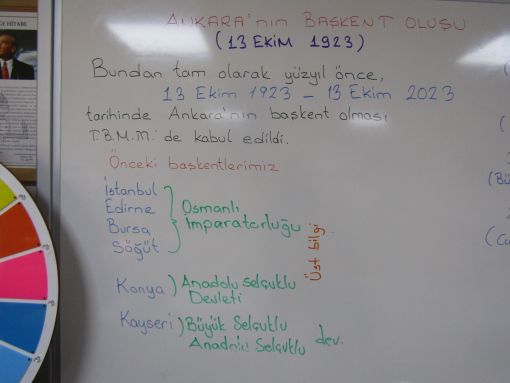 ANKARA'nın BAŞKENT OLUŞU
(13 EKİM 1923)
Bundan tam olarak yüzyıl önce,
13 Ekim 1923 – 13 Ekim 2023
tarihinde Ankara'nın başkent olması
T.B.M.M.'de kabul edildi.
Önceki başkentlerimiz
İstanbul
Edirne
Bursa
Söğüt
Osmanlı
İmparatorluğu
Üst bilgi
Konya) Anadolu Selçuklu
Devleti
Kayseri) Büyük Selçuklu
Anadolu Selçuklu dev.